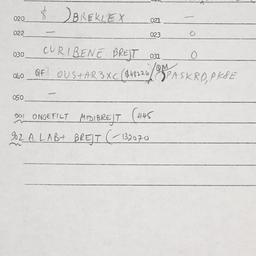 020 $ ) BREKLEX 021 —
022 — 023 0
030 CURIBENE BREJT 031 0
040 QF OUS+AR3XC PASKRD, PK8E
050 —
901 ONGEFILT MIDIBREJT (445
902 A LAB+ BREJT (-132070